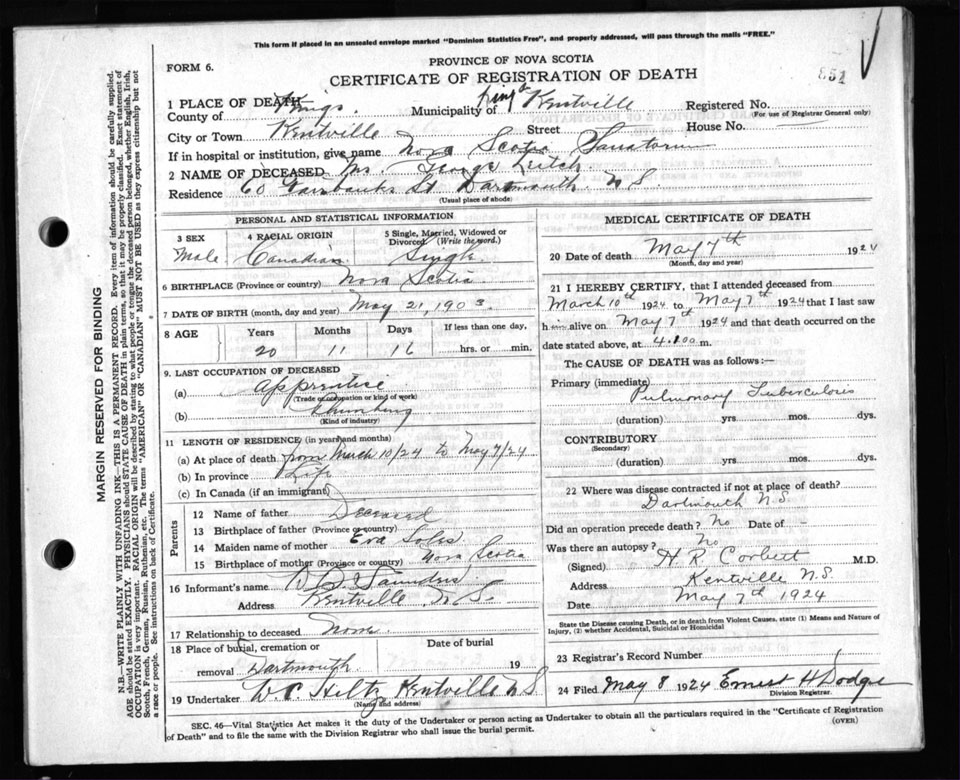 This form if placed in an unsealed envelope marked "Dominion Statistics Free", and properly addressed, will pass through the mails "FREE."
FORM 6.
PROVINCE OF NOVA SCOTIA
CERTIFICATE OF REGISTRATION OF DEATH
851
1 PLACE OF DEATH
County of Kings Municipality of Kings Kentville Registered No.
(For use of Registrar General only)
City or Town Kentville Street House No.
If in hospital or institution, give name Nova Scotia Sanatorium
2 NAME OF DECEASED Mr. George Leitch
Residence 60 Fairbanks St. Dartmouth N S.
(Usual place of abode)
PERSONAL AND STATISTICAL INFORMATION
3 SEX 4 RACIAL ORIGIN 5 Single, Married, Widowed or Divorced (Write the word.)
Male Canadian Single
6 BIRTHPLACE (Province or country) Nova Scotia
7 DATE OF BIRTH (month, day and year) May 21, 1903
8 AGE Years Months Days If less than one day,
20 11 16 hrs. or min.
9. LAST OCCUPATION OF DECEASED
(a) Apprentice
(Trade or occupation or kind of work)
(b) Plumbing
(Kind of industry)
11 LENGTH OF RESIDENCE (in years and months)
(a) At place of death from March 10/24 to May 7/24
(b) In province Life
(c) In Canada (if an immigrant)
Parents
12 Name of father Deceased
13 Birthplace of father (Province or country)
14 Maiden name of mother Eva
15 Birthplace of mother (Province or country) Nova Scotia
16 Informant's name Saunders
Address Kentville, N.S.
17 Relationship to deceased None
18 Place of burial, cremation or removal Dartmouth
Date of burial 19
19 Undertaker W.C. Hiltz Kentville N S
(Name and address)
MEDICAL CERTIFICATE OF DEATH
20 Date of death May 7th 1924
(Month, day and year)
21 I HEREBY CERTIFY, that I attended deceased from
March 10th 1924 to May 7th 1924 that I last saw
him alive on May 7th 1924 and that death occurred on the
date stated above, at 4.100 m.
The CAUSE OF DEATH was as follows:—
Primary (immediate) Pulmonary Tuberculosis
(duration) yrs mos. dys.
CONTRIBUTORY
(Secondary)
(duration) yrs. mos. dys.
22 Where was disease contracted if not at place of death?
Dartmouth N.S.
Did an operation precede death? No Date of -
Was there an autopsy? No
(Signed) H R Corbett M.D.
Address Kentville N.S.
Date May 7th 1924
State the Disease causing Death, or in death from Violent Causes, state (1) Means and Nature of
Injury, (2) whether Accidental, Suicidal or Homicidal
23 Registrar's Record Number
24 Filed May 8 1924 Ernest H Dodge
Division Registrar.
SEC. 46—Vital Statistics Act makes it the duty of the Undertaker or person acting as Undertaker to obtain all the particulars required in the "Certificate of Registration
of Death" and to file the same with the Division Registrar who shall issue the burial permit.
(OVER)
MARGIN RESERVED FOR BINDING
N.B.—WRITE PLAINLY WITH UNFADING INK—THIS IS A PERMANENT RECORD. Every item of information should be carefully supplied.
AGE should be stated EXACTLY. PHYSICIANS should STATE CAUSE OF DEATH in plain terms, so that it may be properly classified. Exact statement of
OCCUPATION is very important. RACIAL ORIGIN will be described by stating to what people or tongue the deceased person belonged, whether English, Irish,
Scotch, French, German, Russian, Ruthenian, etc. The terms "AMERICAN" or "CANADIAN" MUST NOT BE USED as they express citizenship but not
a race or people. See instructions on back of Certificate.